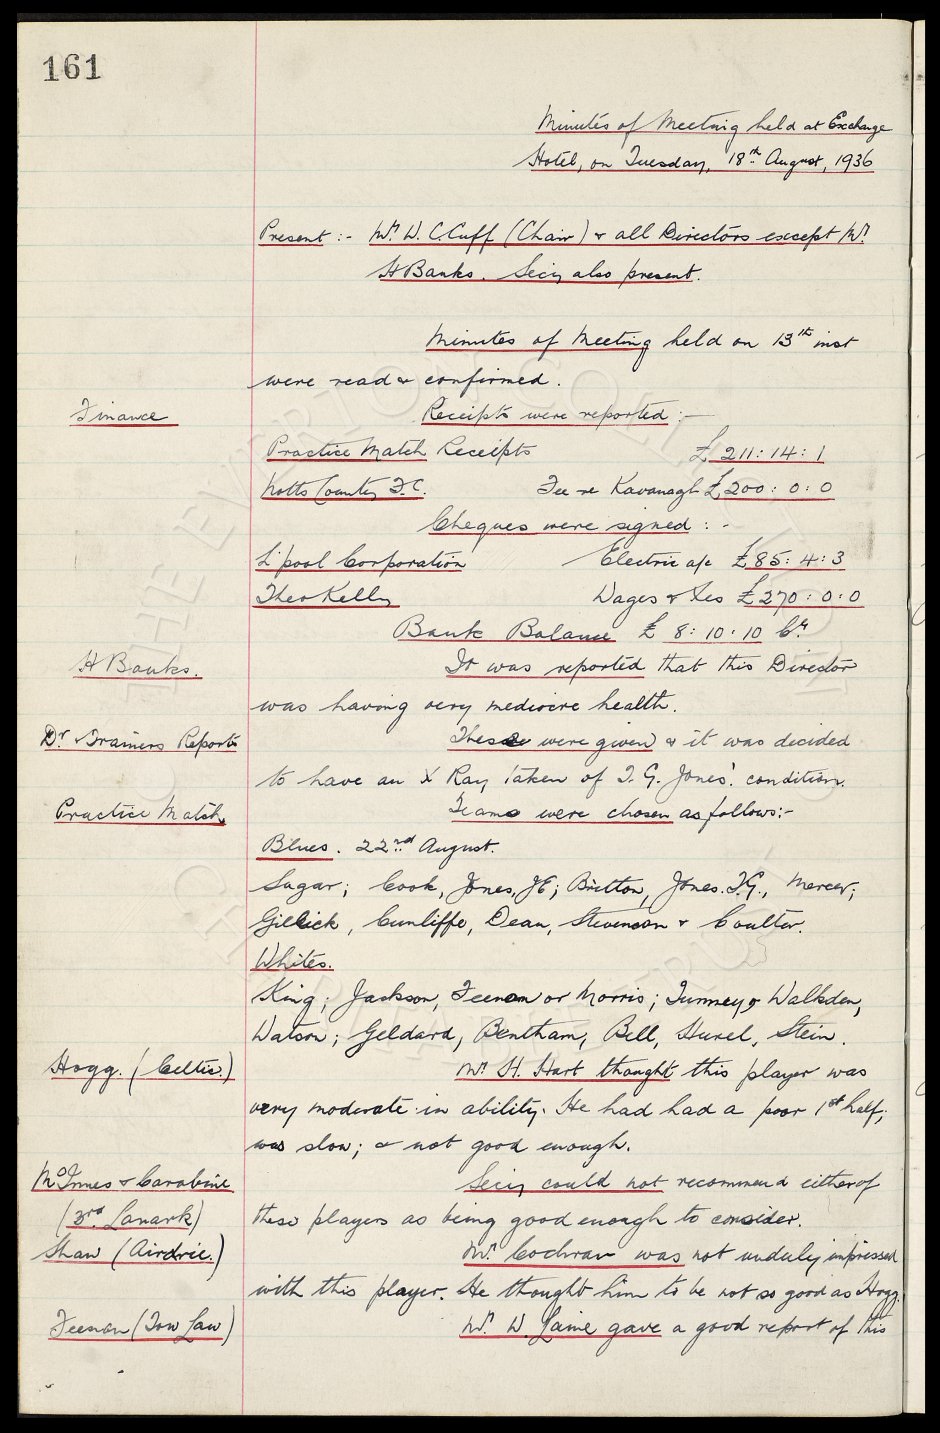 161
Minutes of Meeting held at Exchange
Hotel, on Tuesday, 18th August, 1936
Present :- Mr W. C. Cuff (Chair) & all Directors except Mr
H Banks. Secy also present.
Minutes of Meeting held on 13th inst
were read & confirmed.
Finance
Receipts were reported :-
Practice Match Receipts £ 211 : 14 : 1
Notts County F.C. Fee re Kavanagh £200 : 0 : 0
Cheques were signed : -
L'pool Corporation Electric a/c £85 : 4 : 3
Theo Kelly Wages & Fes £270 : 0 : 0
Bank Balance £ 8 : 10 : 10 Cr
H Banks.
It was reported that this Director
was having very mediocre health.
Dr & Trainers Reports
These were given & it was decided
to have an X Ray taken of T. G. Jones'. condition.
Practice Match.
Teams were chosen as follows:-
Blues. 22nd August.
Sagar; Cook, Jones, JE; Britton, Jones. T.G., Mercer;
Gillick, Cunliffe, Dean, Stevenson & Coulter.
Whites.
King; Jackson, Feenan or Morris; Tunney, Walkden,
Watson; Geldard, Bentham, Bell, Hurel, Stein.
Hogg. (Celtic.)
Mr H. Hart thought this player was
very moderate in ability. He had had a poor 1st half;
was slow; & not good enough.
McInnes & Carabine
(3rd Lanark)
Secy could not recommend either of
these players as being good enough to consider.
Shaw (Airdrie.)
Mr Cochran was not unduly impressed
with this player. He thought him to be not so good as Hogg.
Feenan (Tow Law)
Mr. W. Laine gave a good report of this
THE EVERTON COLLECTION